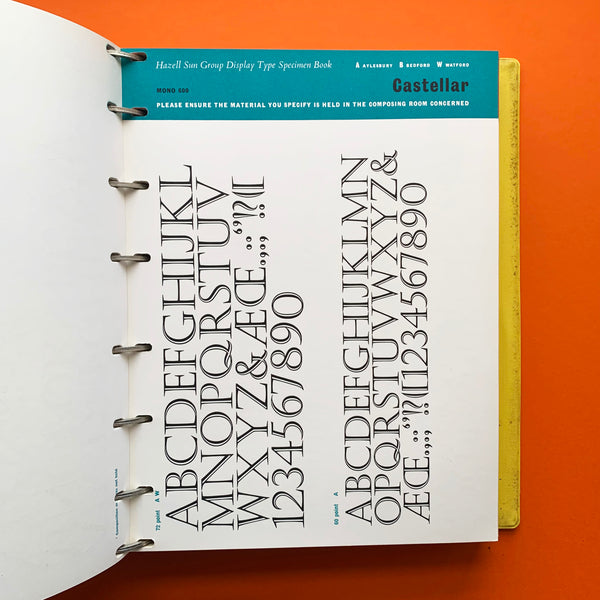 Hazell Sun Group Display Type Specimen Book
A AYLESBURY B BEDFORD W WATFORD
MONO 600
Castellar
PLEASE ENSURE THE MATERIAL YOU SPECIFY IS HELD IN THE COMPOSING ROOM CONCERNED
72 point A W
ABCDEFGHIJKL
MNOPQRSTUV
WXYZ&ÆŒ.,:;‘’!?([
1234567890
60 point A
ABCDEFGHIJKLMN
OPQRSTUVWXYZ&
ÆŒ.,:;‘’!?([1234567890